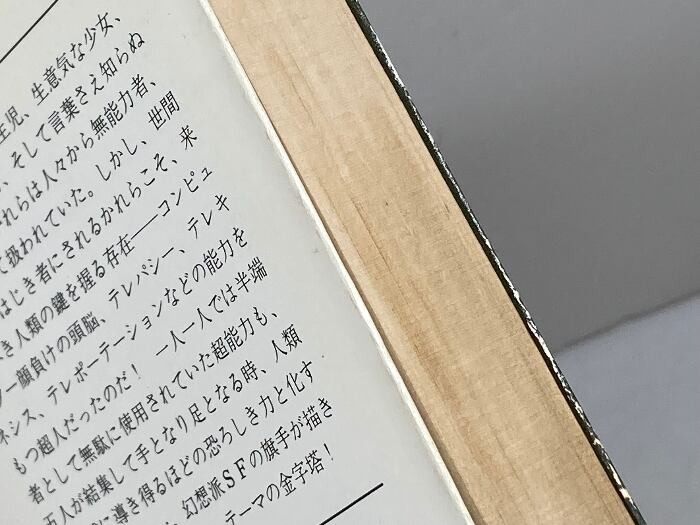 生児、生意気な少女、
、そして言葉さえ知らぬ
かれらは人々から無能力者、
て扱われていた。しかし、世間
はじき者にされるかれらこそ、来
き人類の鍵を握る存在――コンピュ
ター顔負けの頭脳、テレパシー、テレキ
ネシス、テレポーテーションなどの能力を
もつ超人だったのだ！ 一人一人では半端
者として無駄に使用されていた超能力も、
五人が結集して手となり足となる時、人類
に導き得るほどの恐ろしき力と化す
、幻想派ＳＦの旗手が描き
テーマの金字塔！